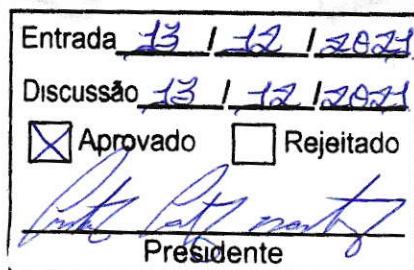 Entrada 13 / 12 / 2021
Discussão 13 / 12 / 2021
Aprovado Rejeitado
Presidente